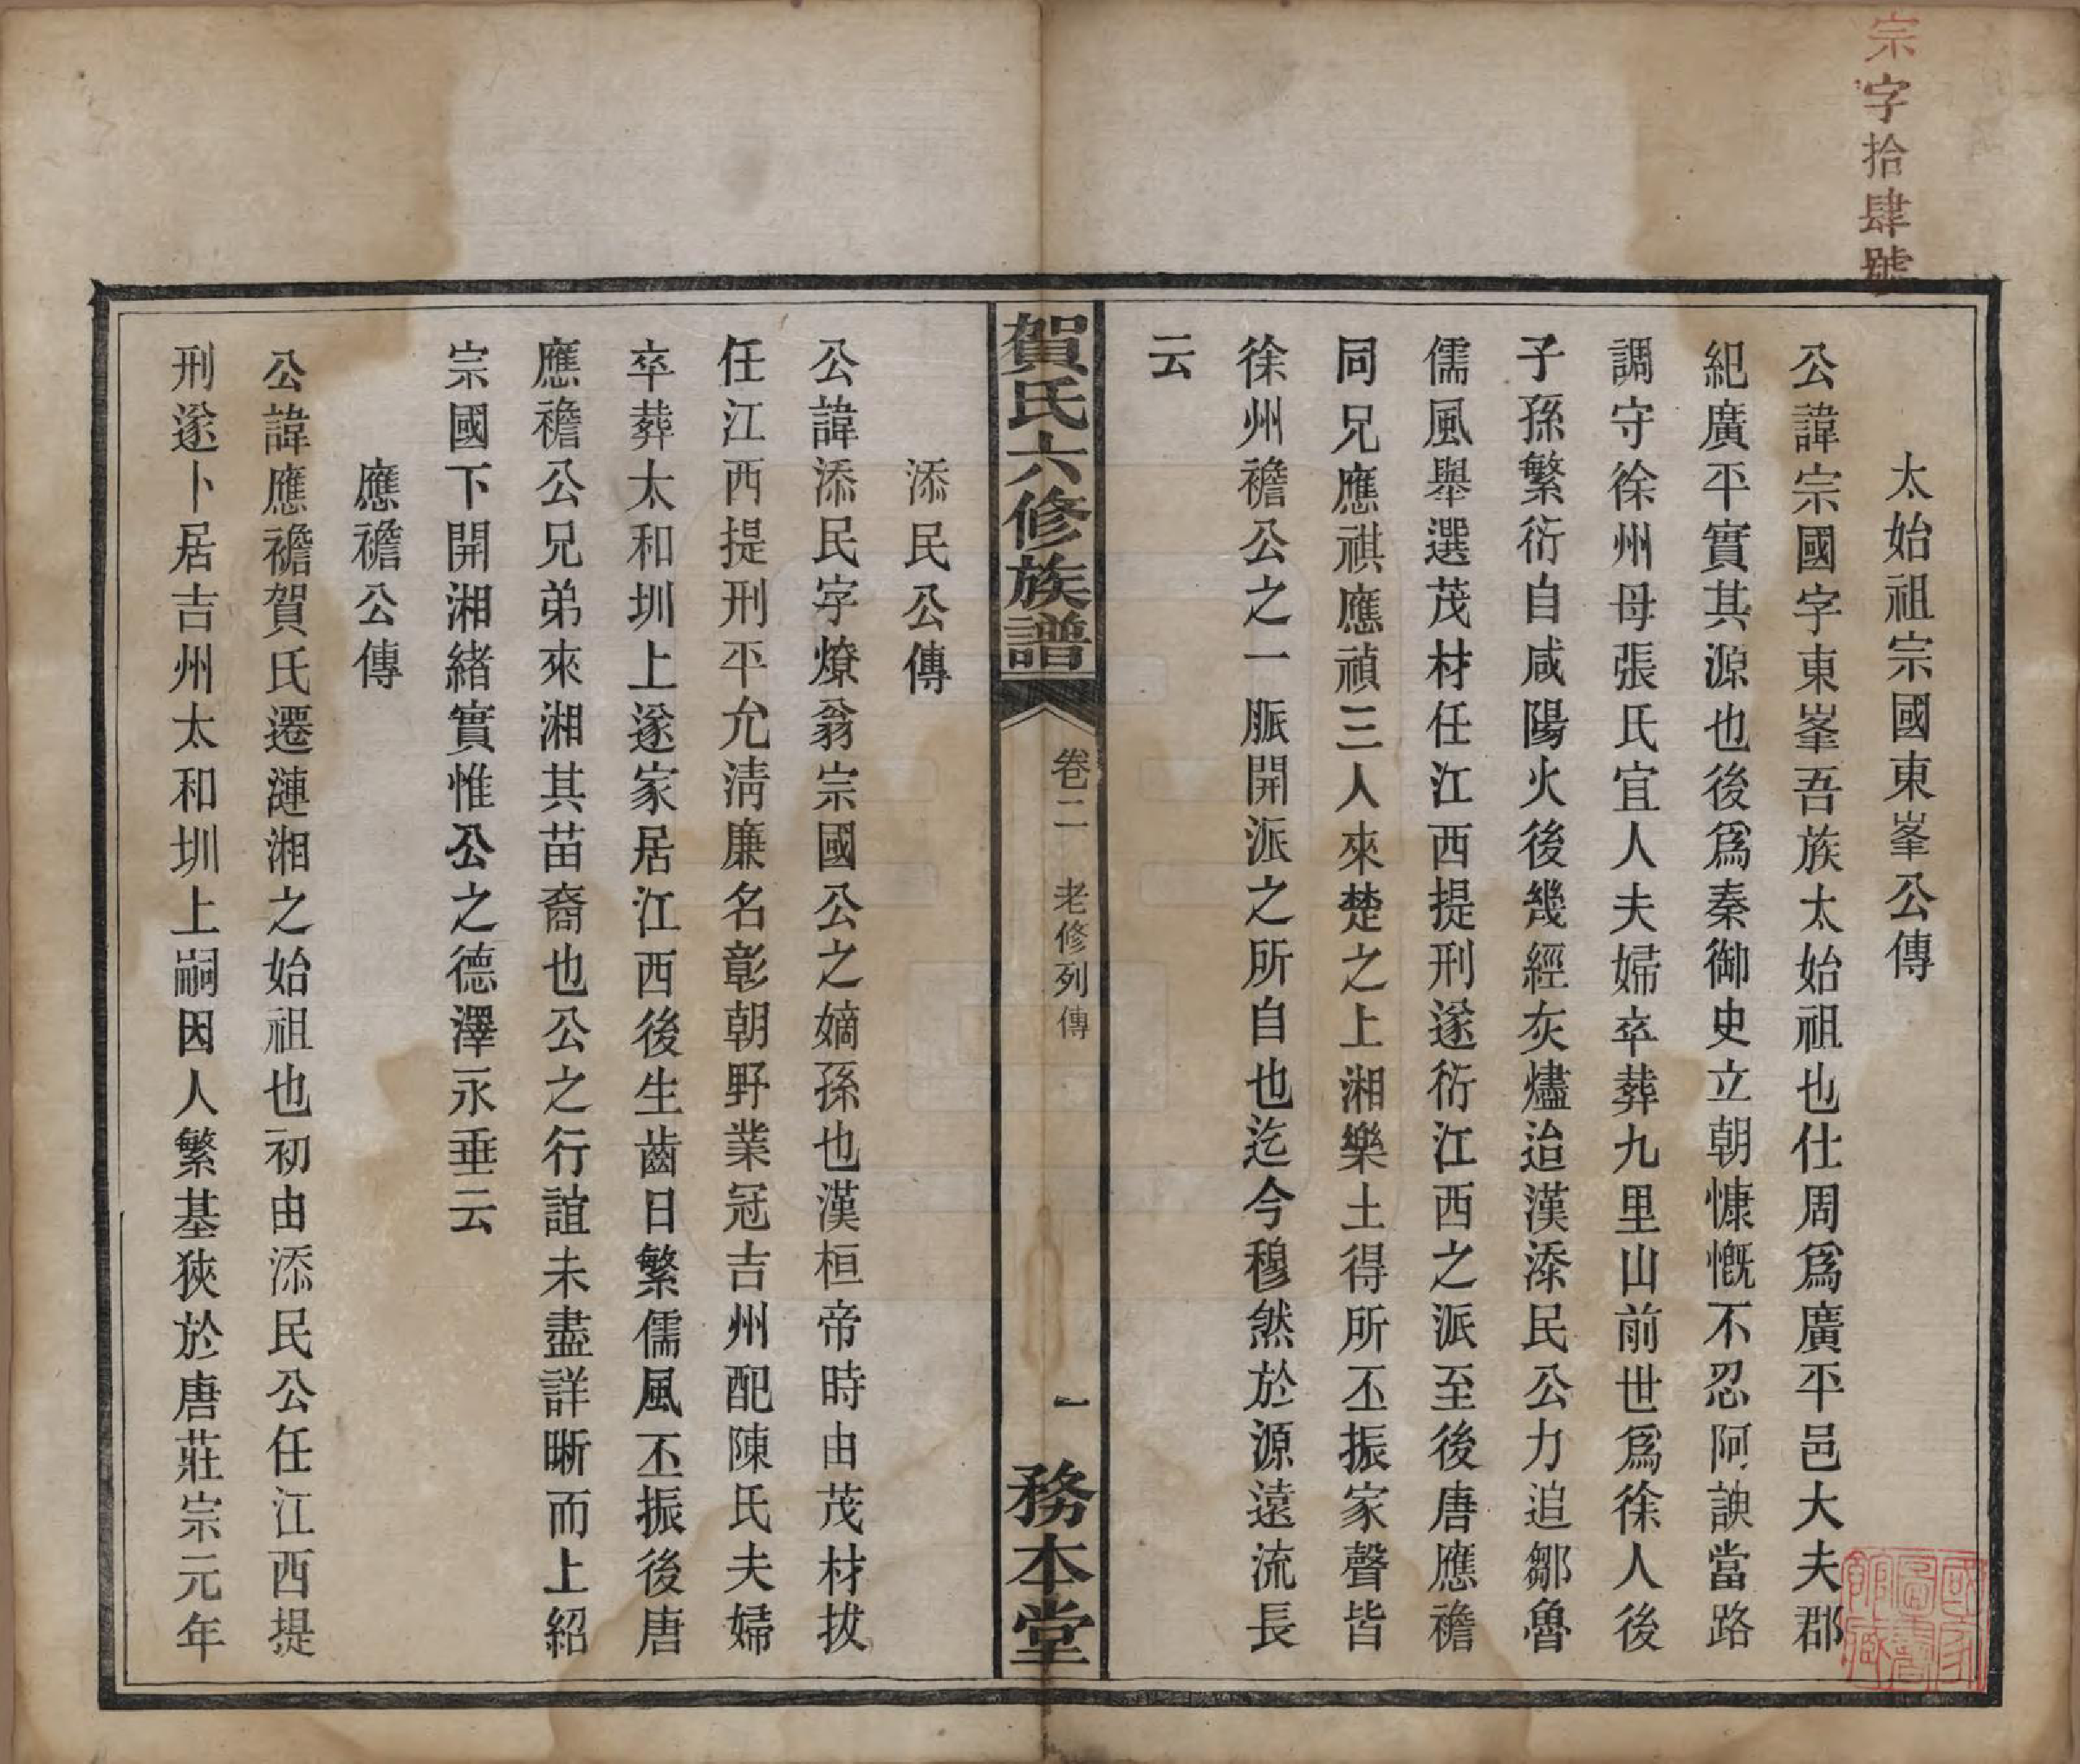 宗字拾肆號
太始祖宗國東峯公傳
公諱宗國字東峯吾族太始祖也仕周爲廣平邑大夫郡
紀廣平實其源也後爲秦御史立朝慷慨不忍阿諛當路
調守徐州母張氏宜人夫婦卒葬九里山前世爲徐人後
子孫繁衍自咸陽火後幾經灰燼迨漢添民公力追鄒魯
儒風舉選茂材任江西提刑遂衍江西之派至後唐應襜
同兄應祺應禎三人來楚之上湘樂土得所丕振家聲皆
徐州襜公之一脈開派之所自也迄今穆然於源遠流長
云
賀氏六修族譜
卷二 老修列傳
一
務本堂
添民公傳
公諱添民字燎翁宗國公之嫡孫也漢桓帝時由茂材拔
任江西提刑平允淸廉名彰朝野業冠吉州配陳氏夫婦
卒葬太和圳上遂家居江西後生齒日繁儒風丕振後唐
應襜公兄弟來湘其苗裔也公之行誼未盡詳晰而上紹
宗國下開湘緒實惟公之德澤永垂云
應襜公傳
公諱應襜賀氏遷漣湘之始祖也初由添民公任江西提
刑遂卜居吉州太和圳上嗣因人繁基狹於唐莊宗元年
國家圖書館藏